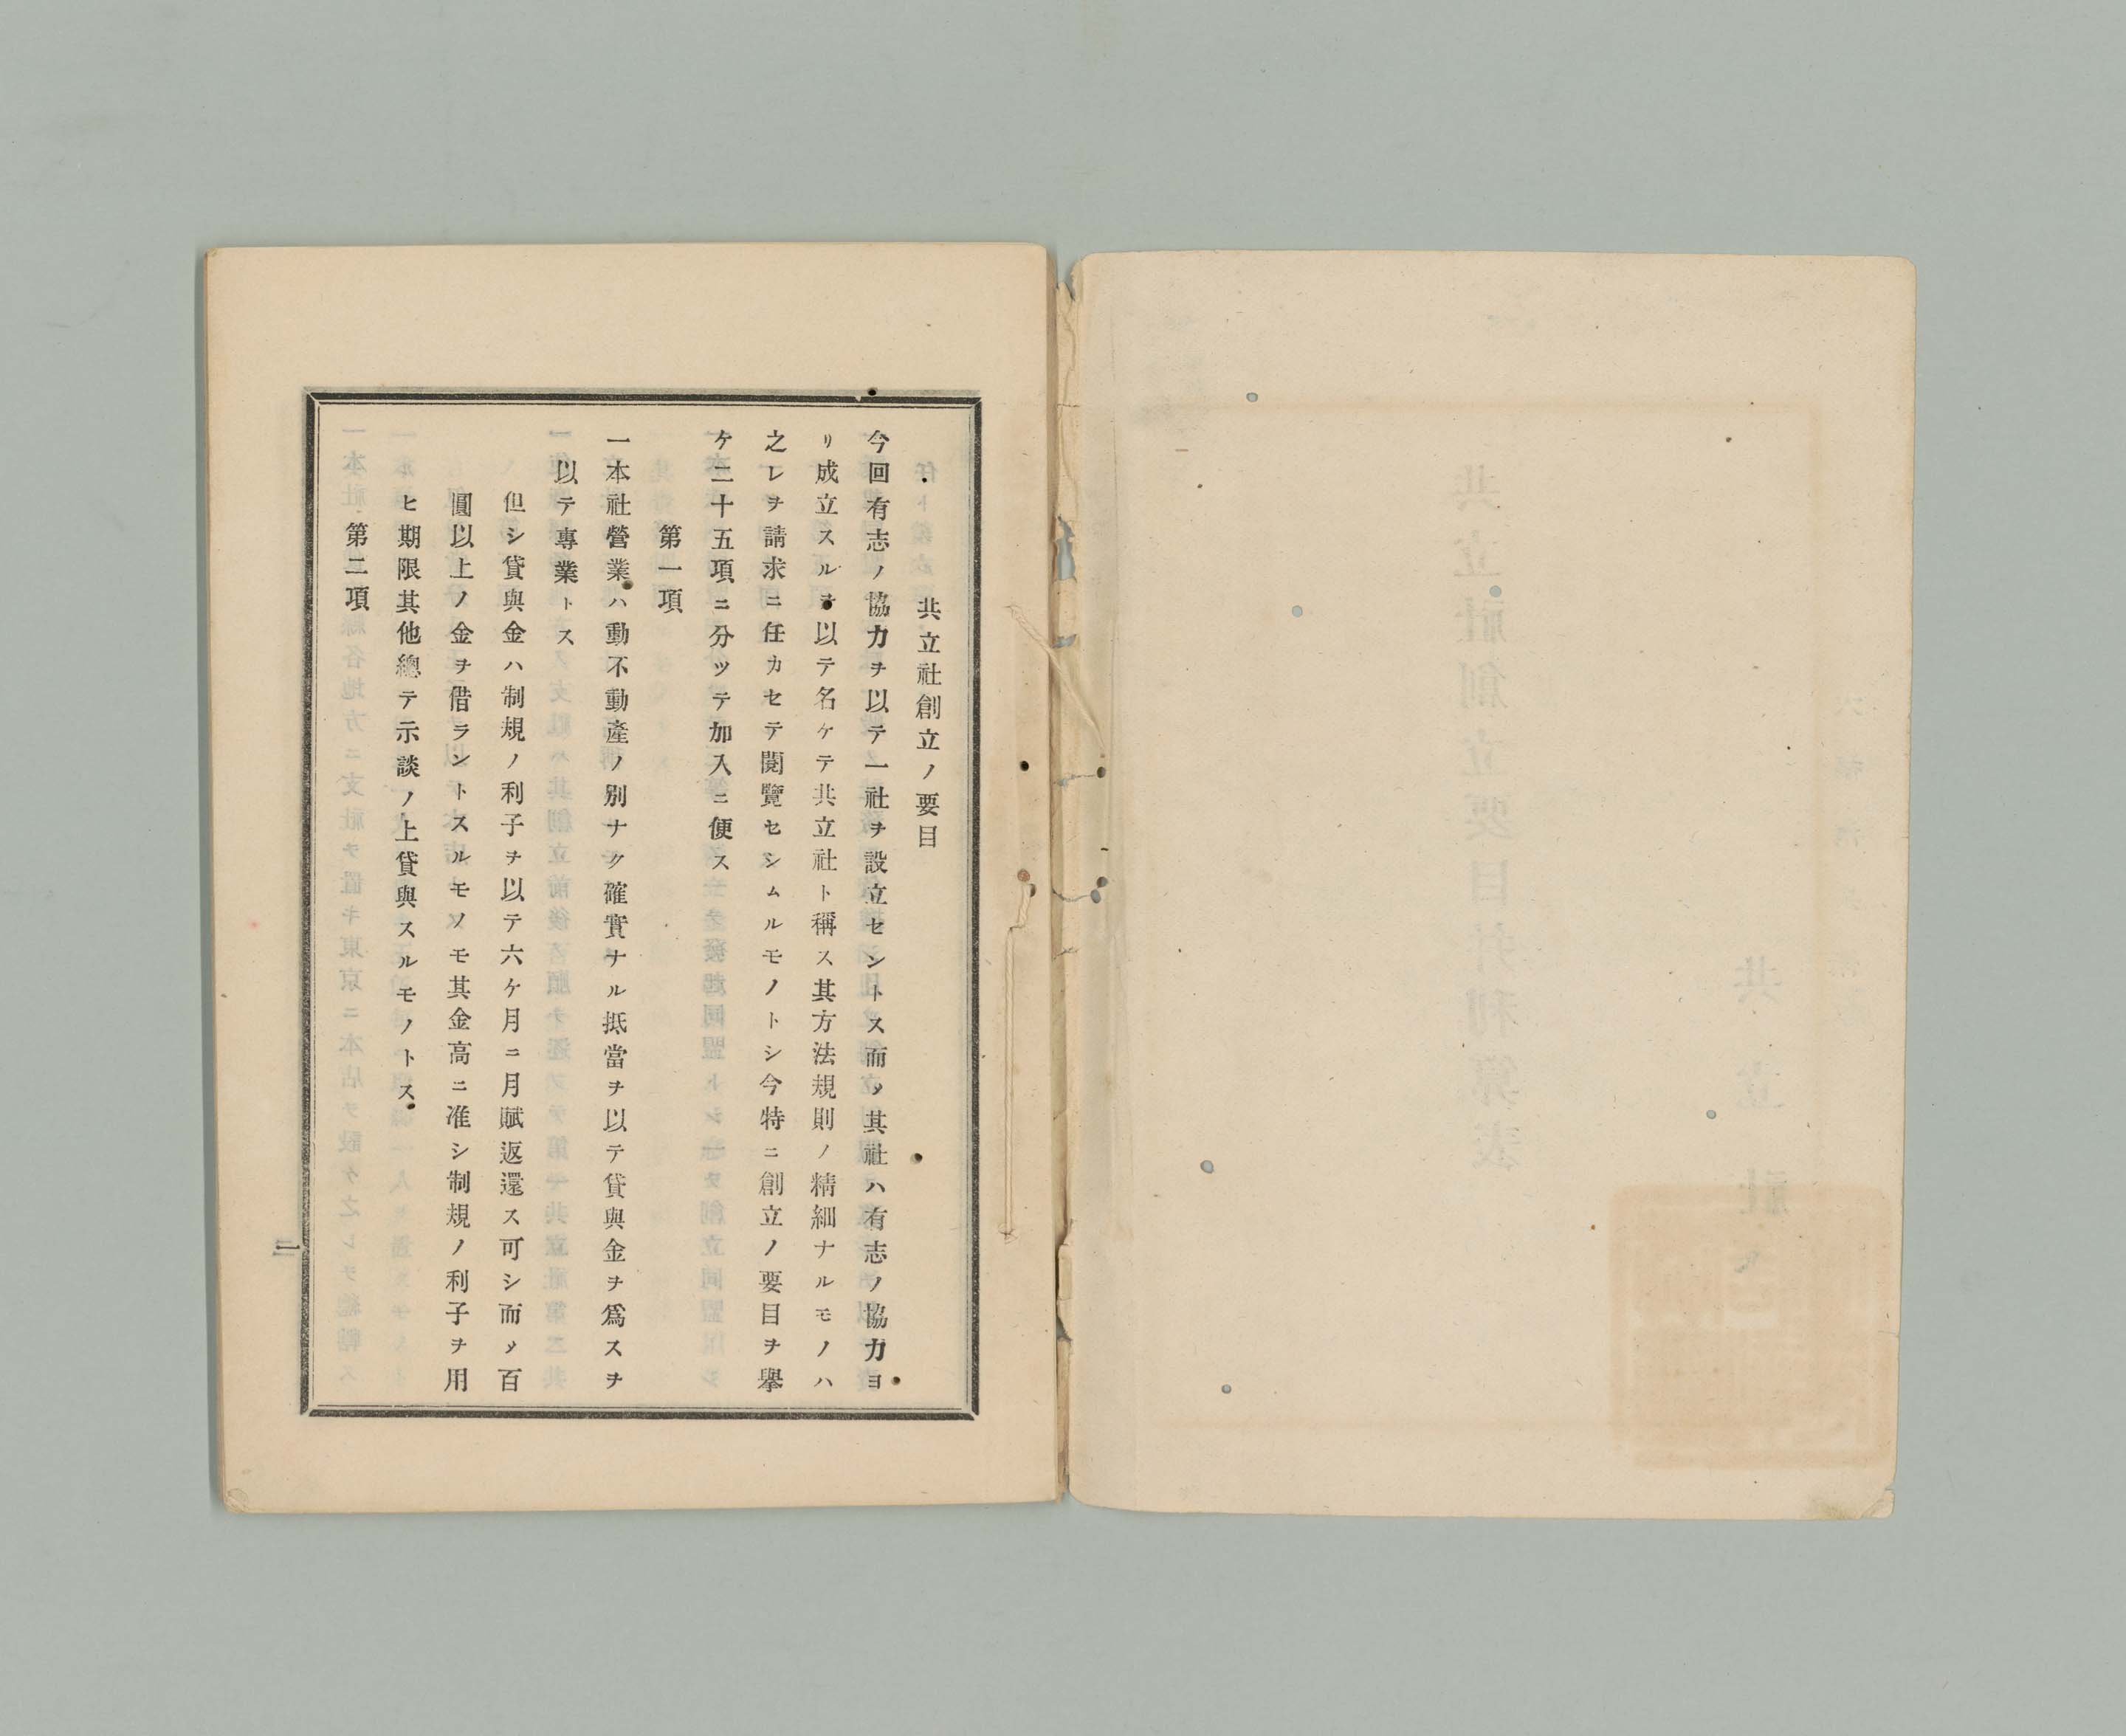 共立社創立ノ要目
今回有志ノ協力ヲ以テ一社ヲ設立セントス而〆其社ハ有志ノ協力ヨ
リ成立スルヲ以テ名ケテ共立社ト稱ス其方法規則ノ精細ナルモノハ
之レヲ請求ニ任カセテ閱覽セシムルモノトシ今特ニ創立ノ要目ヲ擧
ケ二十五項ニ分ツテ加入ニ便ス
第一項
一本社營業ハ動不動產ノ別ナク確實ナル抵當ヲ以テ貸與金ヲ爲スヲ
以テ專業トス
但シ貸與金ハ制規ノ利子ヲ以テ六ケ月ニ月賦返還ス可シ而〆百
圓以上ノ金ヲ借ラントスルモノモ其金高ニ准シ制規ノ利子ヲ用
ヒ期限其他總テ示談ノ上貸與スルモノトス
第二項
一
共立社創立要目并利第表
共立社